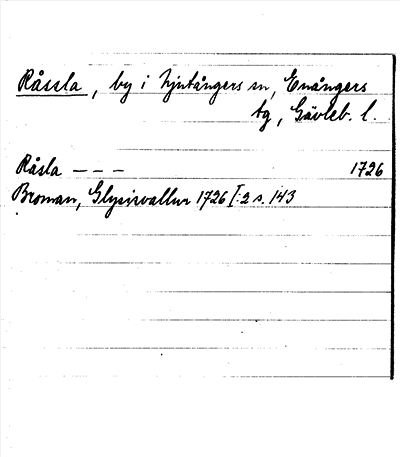 Råssla, by i Njutångers sn, Enångers
tg, Gävleb. l.
Råsla - - - 1726
Broman, Glysisvallur 1726 I:2 s. 143